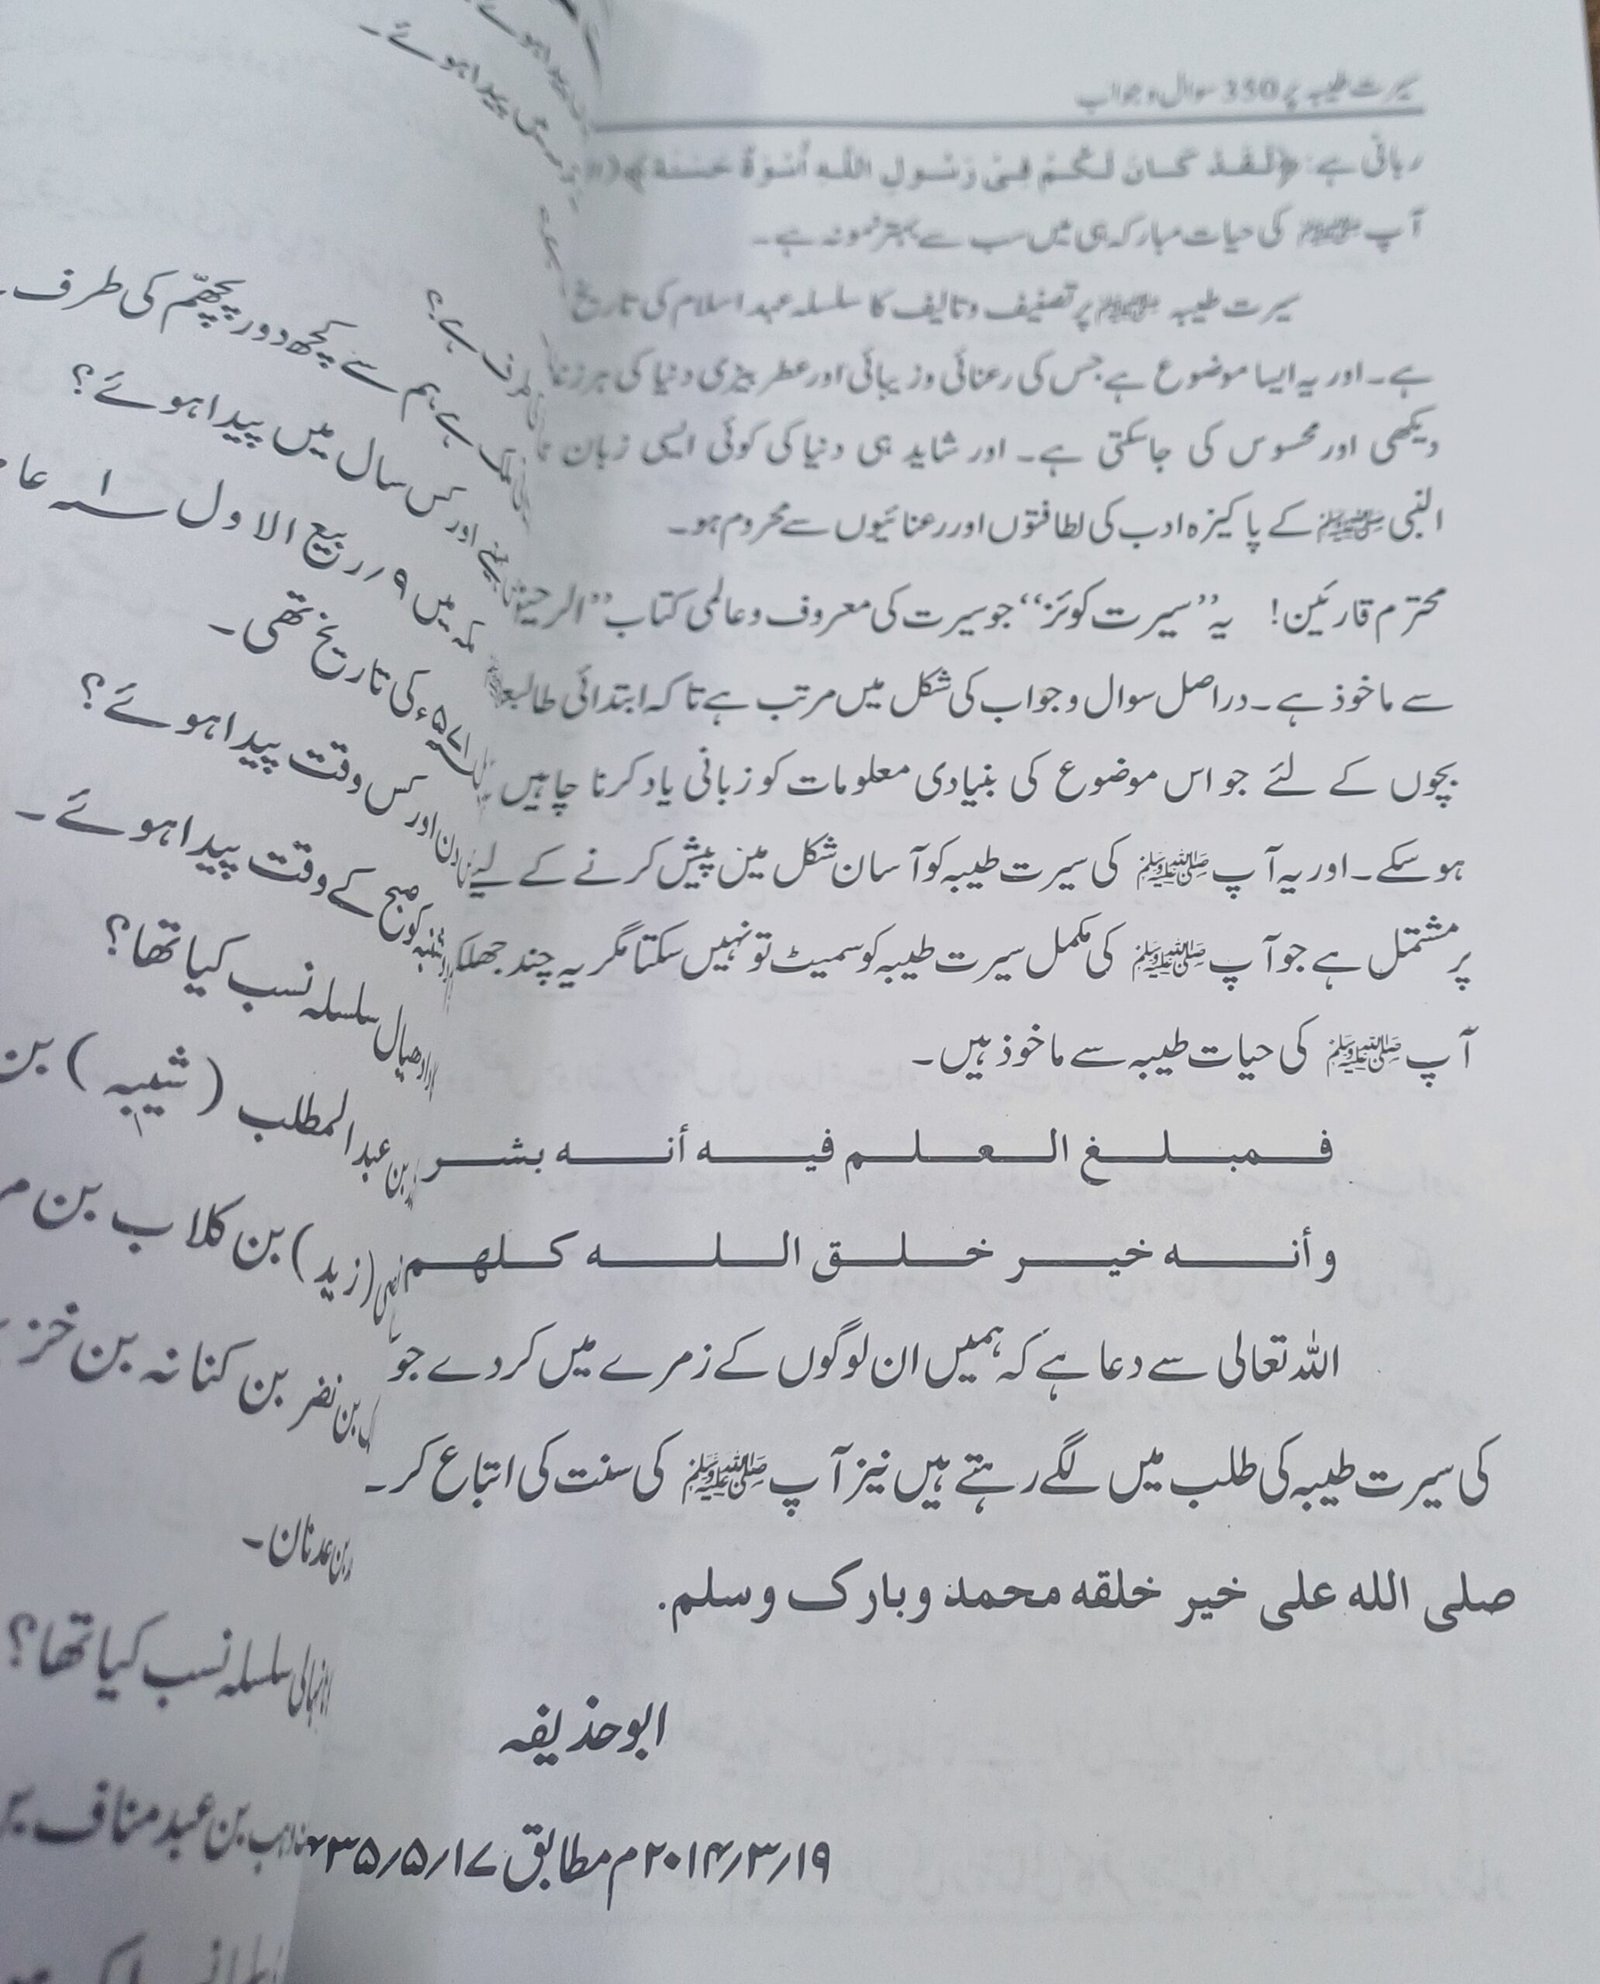 سیرت طیبہ پر 350 سوال و جواب
ربانی ہے: ﴿لَقَدْ كَانَ لَكُمْ فِيْ رَسُولِ اللهِ أُسْوَةٌ حَسَنَةٌ﴾
آپ ﷺ کی حیات مبارکہ ہی میں سب سے بہتر نمونہ ہے۔
سیرت طیبہ ﷺ پر تصنیف و تالیف کا سلسلہ عہد اسلام کی تاریخ
ہے۔ اور یہ ایسا موضوع ہے جس کی رعنائی وزیبائی اور عطر بیزی دنیا کی ہر
دیکھی اور محسوس کی جاسکتی ہے۔ اور شاید ہی دنیا کی کوئی ایسی زبان
النبی ﷺ کے پاکیزہ ادب کی لطافتوں اور رعنائیوں سے محروم ہو۔
محترم قارئین! یہ ”سیرت کوئز“ جو سیرت کی معروف و عالمی کتاب ”الرحیق
سے ماخوذ ہے۔ دراصل سوال و جواب کی شکل میں مرتب ہے تاکہ ابتدائی
بچوں کے لئے جو اس موضوع کی بنیادی معلومات کو زبانی یاد کرنا چاہیں
ہوسکے۔ اور یہ آپ ﷺ کی سیرت طیبہ کو آسان شکل میں پیش کرنے کے لیے
پر مشتمل ہے جو آپ ﷺ کی مکمل سیرت طیبہ کو سمیٹ تو نہیں سکتا مگر یہ چند
آپ ﷺ کی حیات طیبہ سے ماخوذ ہیں۔
فمبلغ العلم فيه أنه بشر
وأنه خير خلق الله كلهم
اللہ تعالی سے دعا ہے کہ ہمیں ان لوگوں کے زمرے میں کردے جو
کی سیرت طیبہ کی طلب میں لگے رہتے ہیں نیز آپ ﷺ کی سنت کی اتباع کر
صلى الله على خير خلقه محمد وبارك وسلم.
ابوحذیفہ
۱۹/۳/۲۰۱۴م مطابق ۱۷/۵/
میں پیدا ہوئے۔
طرف ہے؟
ہے ہم سے کچھ دور پچھّم کی طرف
اور کس سال میں پیدا ہوئے؟
مکہ میں ۹/ربیع الاول ۱ـہ
۵۷۱ء کی تاریخ تھی۔
دن اور کس وقت پیدا ہوئے؟
کو صبح کے وقت پیدا ہوئے۔
سلسلہ نسب کیا تھا؟
بن عبدالمطلب (شیبہ) بن
(زید) بن کلاب بن
بن نضر بن کنانہ بن
بن عدنان۔
سلسلہ نسب کیا تھا؟
بن عبد مناف